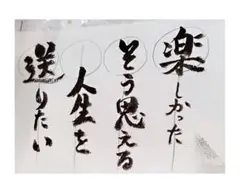 楽しかった
そう思える
人生を
送りたい